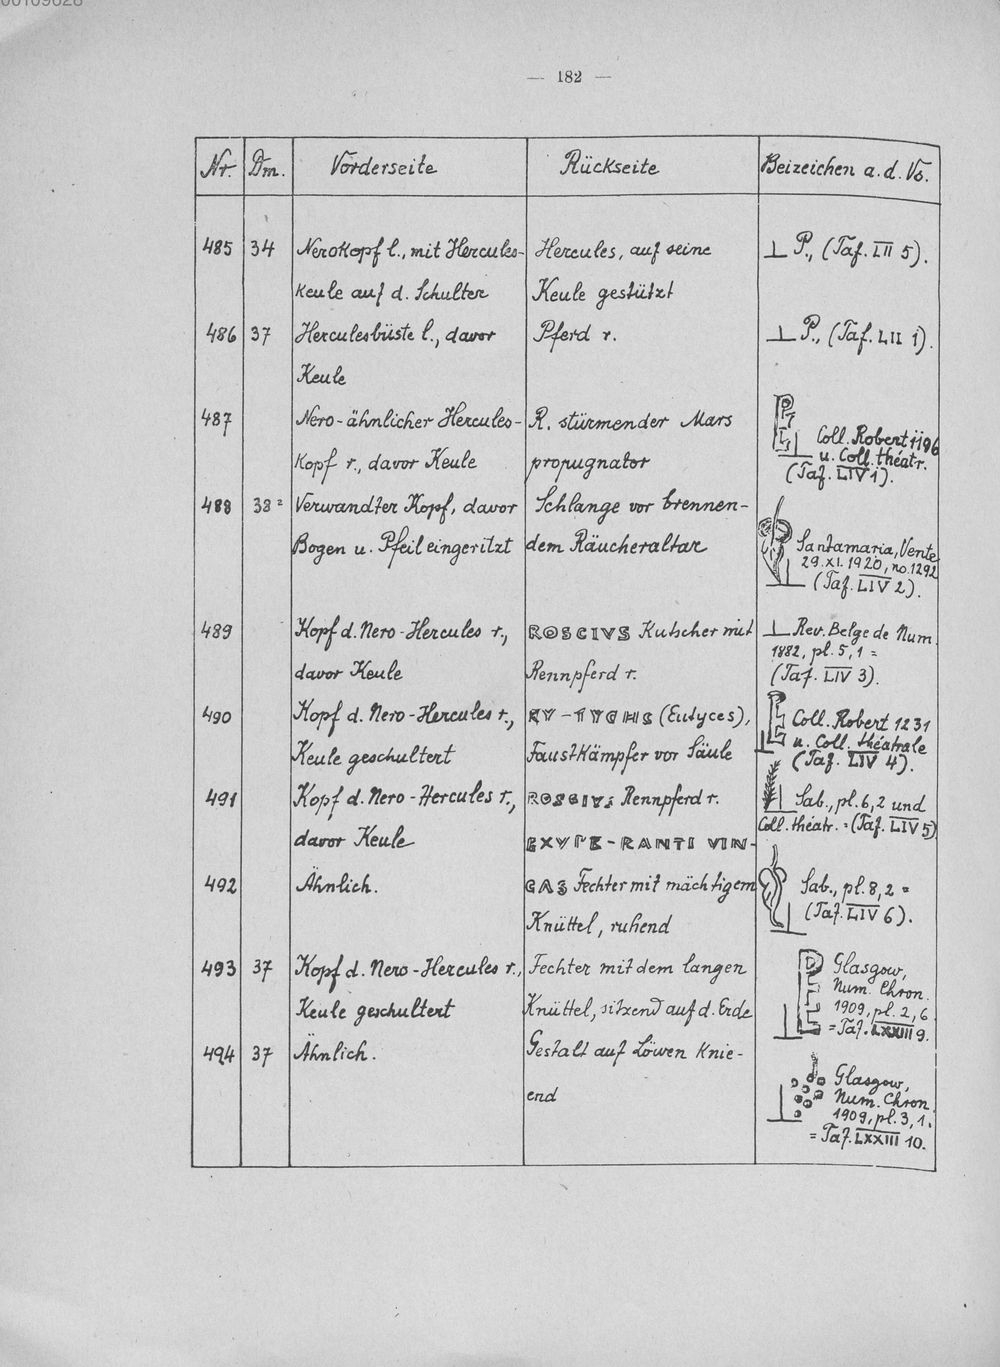 — 182 —
Nr. Dm. Vorderseite Rückseite Beizeichen a. d. Vs.
485 34 Nerokopf l., mit Hercules- Hercules, auf seine ⊥ P., (Taf. LII 5).
Keule auf d. Schulter Keule gestützt
486 37 Herculesbüste l., davor Pferd r. ⊥ P., (Taf. LII 1).
Keule
487 Nero-ähnlicher Hercules- R. stürmender Mars Coll. Robert 1196
Kopf r., davor Keule propugnator u. Coll. théatr.
(Taf. LIV 1).
488 38 Verwandter Kopf, davor Schlange vor brennen-
Bogen u. Pfeil eingeritzt dem Räucheraltar Santamaria, Vente
29. XI. 1920, no. 1292
(Taf. LIV 2).
489 Kopf d. Nero-Hercules r., ROSCIVS Kutscher mit ⊥ Rev. Belge de Num.
1882, pl. 5, 1 =
davor Keule Rennpferd r. (Taf. LIV 3).
490 Kopf d. Nero-Hercules r., EV-TYCHS (Eutyces), Coll. Robert 1231
Keule geschultert Faustkämpfer vor Säule u. Coll. théatrale
(Taf. LIV 4).
491 Kopf d. Nero-Hercules r., ROSCIVS Rennpferd r. Sab., pl. 6, 2 und
Coll. théatr. = (Taf. LIV 5)
davor Keule EXVPE-RANTI VIN-
492 Ähnlich. CAS Fechter mit mächtigem Sab., pl. 8, 2 =
Knüttel, ruhend (Taf. LIV 6).
493 37 Kopf d. Nero-Hercules r., Fechter mit dem langen Glasgow,
Num. Chron.
Keule geschultert Knüttel, sitzend auf d. Erde 1909, pl. 2, 6
= Taf. LXXIII 9.
494 37 Ähnlich. Gestalt auf Löwen Knie-
end Glasgow,
Num. Chron.
1909, pl. 3, 1.
= Taf. LXXIII 10.